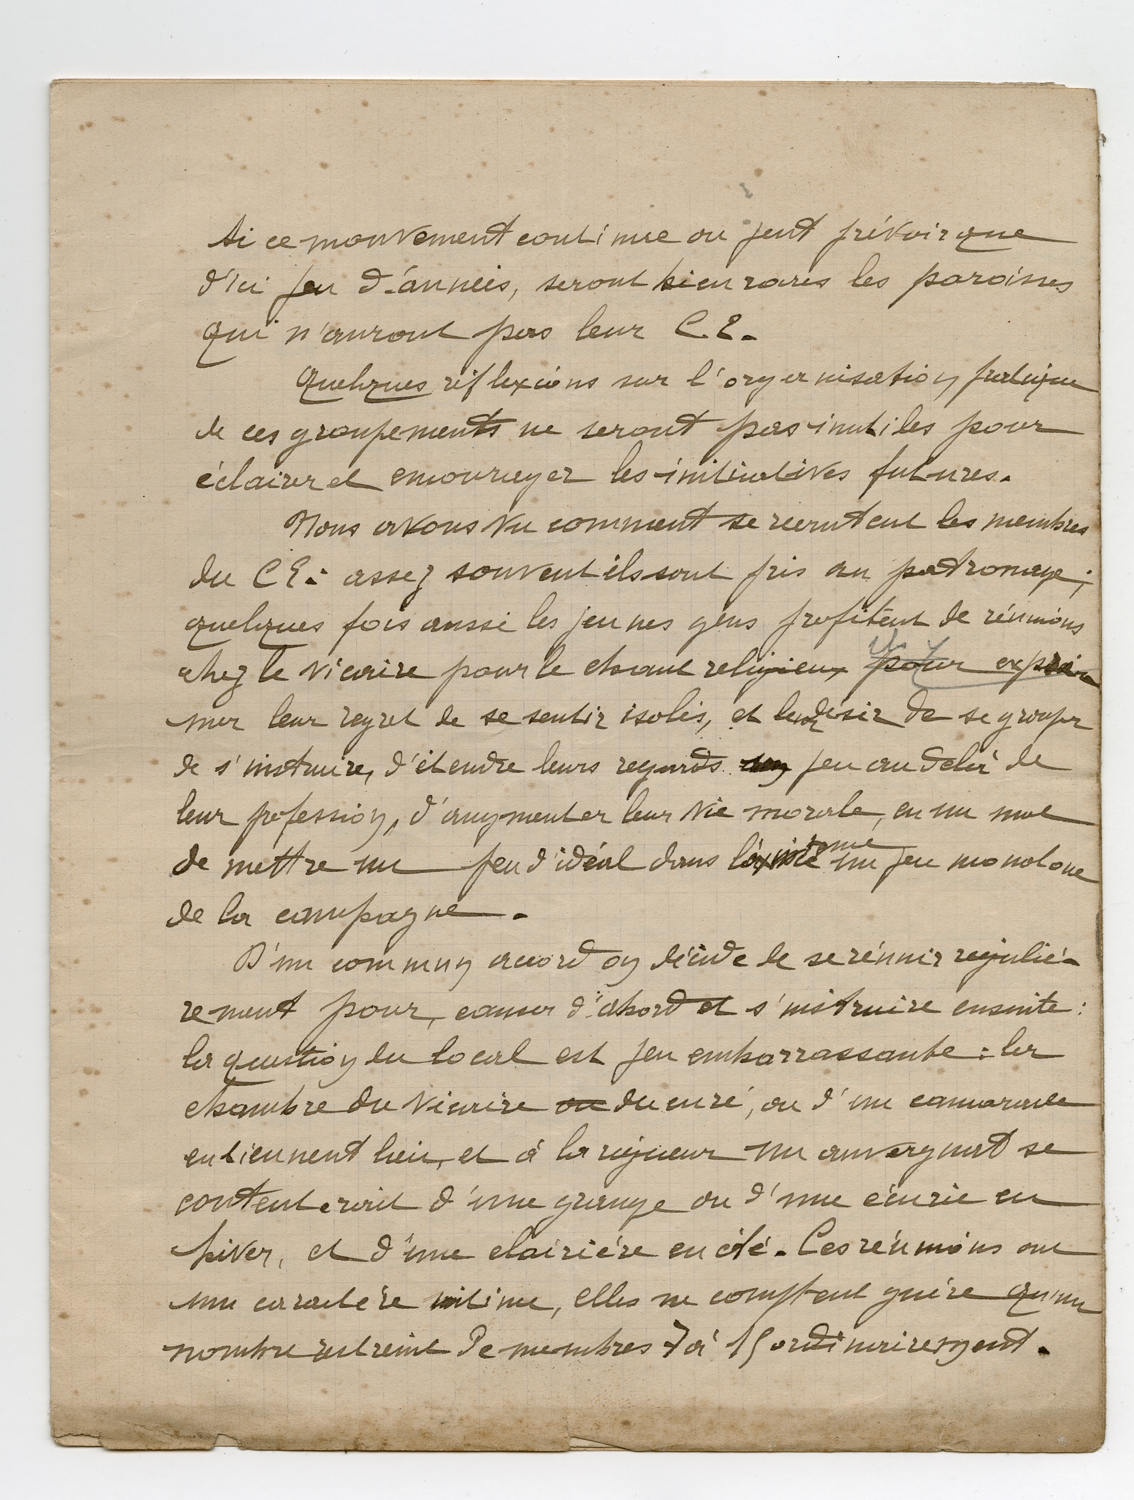 Si ce mouvement continue on peut prévoir que
d'ici peu d'années, seront bien rares les paroisses
qui n'auront pas leur C.E.
Quelques réflexions sur l'organisation pratique
de ces groupements ne seront pas inutiles pour
éclairer et encourager les initiatives futures.
Nous avons vu comment se recrutent les membres
du C E : assez souvent ils sont pris au patronage ;
quelques fois aussi les jeunes gens profitent de réunions
chez le vicaire pour le chant religieux pour exprimer
mer leur regret de se sentir isolés, et leur désir de se grouper
de s'instruire, d'étendre leurs regards un peu au delà de
leur profession, d'augmenter leur vie morale, en un mot
de mettre un peu d'idéal dans un peu monotone
de la campagne.
D'un commun accord on décide de se réunir réguliè-
rement pour, causer d'abord et s'instruire ensuite :
la question du local est peu embarrassante : la
chambre du vicaire ou du curé, ou d'un camarade
en tiennent lieu, et à la rigueur un auvergnat se
contenterait d'une grange ou d'une écurie en
hiver, et d'une clairière en été. Ces réunions ont
un caractère intime, elles ne comptent guère qu'un
nombre restreint de membres 7 à 15 ordinairement.